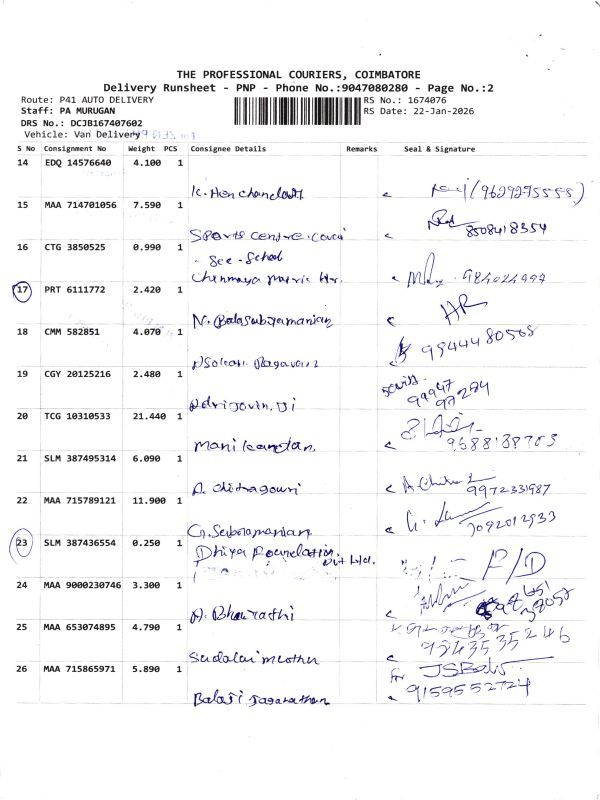 THE PROFESSIONAL COURIERS, COIMBATORE
Delivery Runsheet - PNP - Phone No.:9047080280 - Page No.:2
Route: P41 AUTO DELIVERY
RS No.: 1674076
Staff: PA MURUGAN
RS Date: 22-Jan-2026
DRS No.: DCJB167407602
Vehicle: Van Delivery
S No Consignment No Weight PCS Consignee Details Remarks Seal & Signature
14 EDQ 14576640 4.100 1
K. Hem (9629275558)
15 MAA 714701056 7.590 1
Sports Centre. Covai 8508418354
16 CTG 3850525 0.990 1
- Sec - School
Chinmaya Matric Hr.
17 PRT 6111772 2.420 1
N. Balasubramanian HR
18 CMM 582851 4.070 1
9944480508
19 CGY 20125216 2.480 1
20 TCG 10310533 21.440 1
Manikandan. 9688138703
21 SLM 387495314 6.090 1
A. Chitragouri 9972331987
22 MAA 715789121 11.900 1
G. Subramanian 7092012933
23 SLM 387436554 0.250 1
Dhiya Foundation. Pvt Ltd. F/D
24 MAA 9000230746 3.300 1
A. Bhaurathi
25 MAA 653074895 4.790 1
Sudalai muthu 9243535246
26 MAA 715865971 5.890 1
for JSBabu
Balaji 9159552724